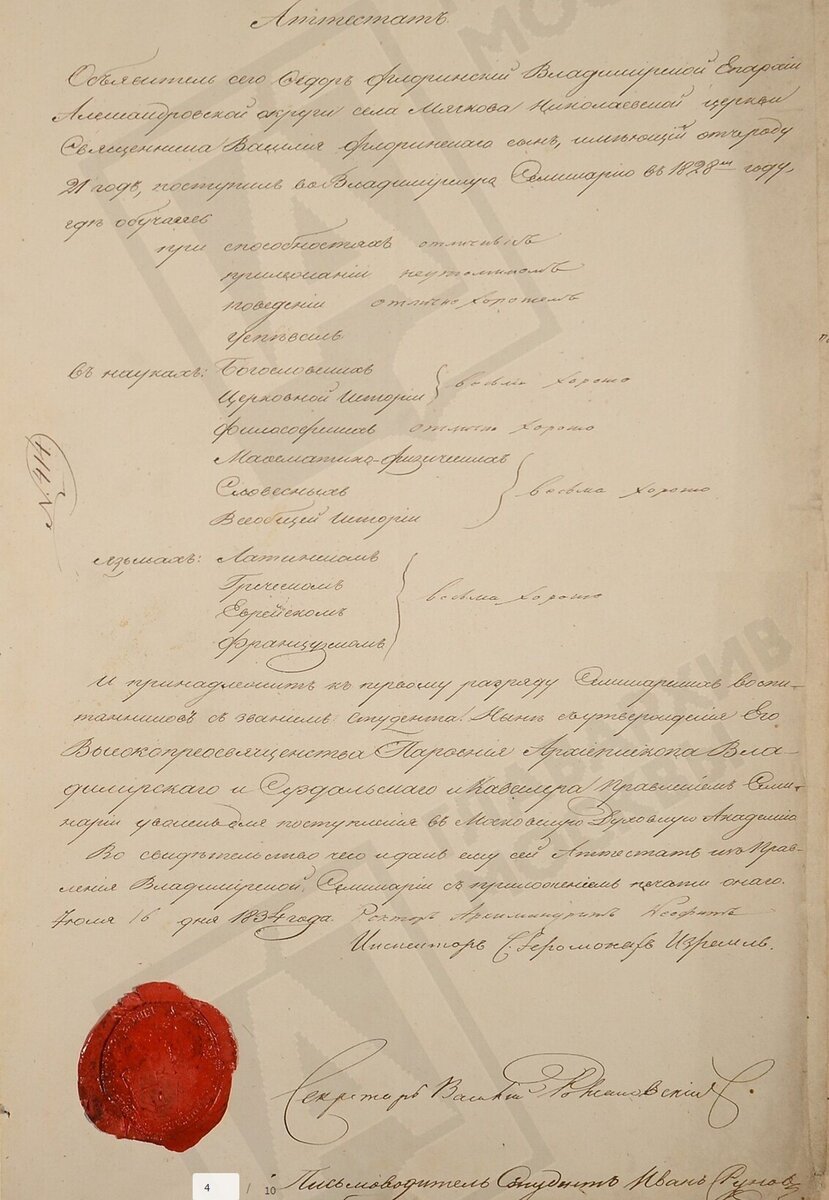 Аттестатъ
Объявитель сего Ѳедоръ Флоринскій Владимірской Епархіи
Александровской округи села Мячкова Николаевской церкви
Священника Василія Флоринскаго сынъ, имѣющій отъ роду
21 годъ, поступилъ во Владимірскую Семинарію въ 1828мъ году,
гдѣ обучался
при способностяхъ отличныхъ
прилежаніи неутомимомъ
поведеніи отлично хорошемъ
успѣвалъ
въ наукахъ: Богословскихъ
Церковной Исторіи } весьма хорошо
Философскихъ отлично хорошо
Математико-физическихъ
Словесныхъ } весьма хорошо
Всеобщей Исторіи
№ 414
языкахъ: Латинскомъ
Греческомъ
Еврейскомъ } весьма хорошо
Французскомъ
И принадлежитъ къ первому разряду Семинарскихъ воспи-
танниковъ съ званіемъ Студента. Нынѣ съ утвержденія Его
Высокопреосвященства Парѳенія Архіепископа Вла-
димірскаго и Суздальскаго и Кавалера Правленіемъ Семи-
наріи уволенъ для поступленія въ Московскую Духовную Академію
Во свидѣтельство чего и данъ ему сей Аттестатъ изъ Прав-
ленія Владимірской Семинаріи съ приложеніемъ печати онаго.
Іюля 16 дня 1834 года. Ректоръ Архимандритъ Неофитъ
Инспекторъ Іеромонахъ Израиль.
Секретарь
Письмоводитель Студентъ Иванъ
4 / 10